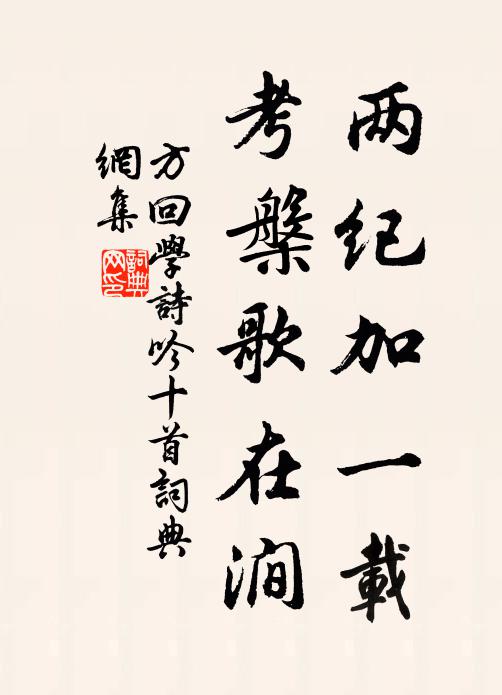 两纪加一载
考槃歌在涧
方回學詩吟十首詞典
網集
詞典
网印